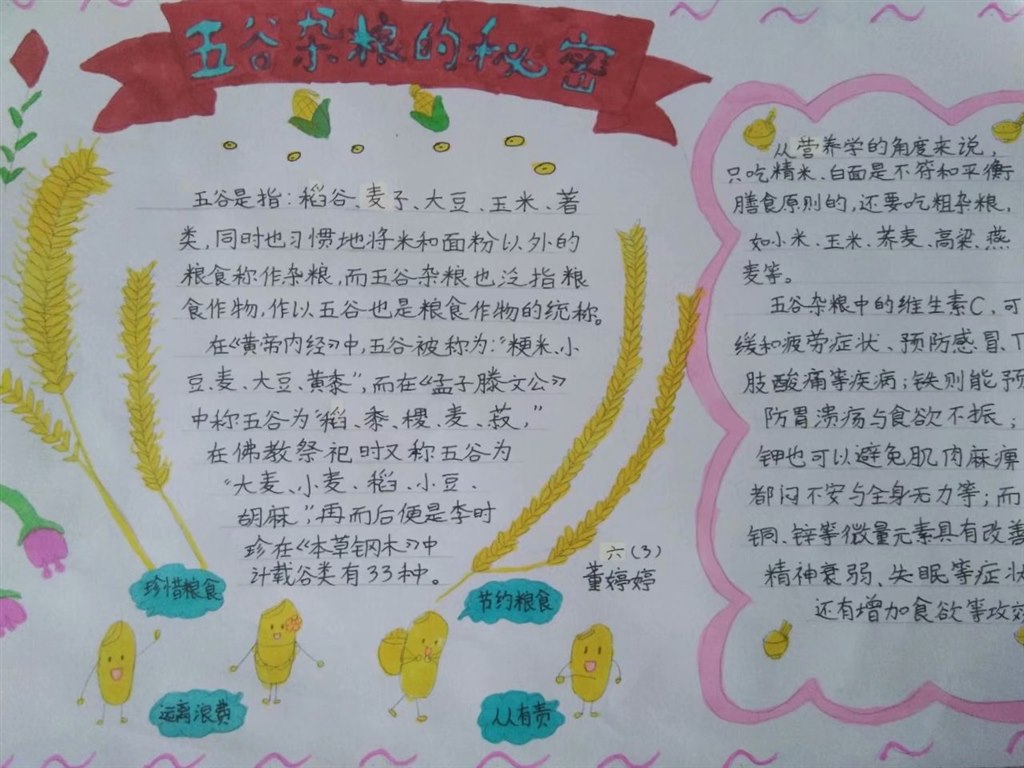 五谷杂粮的秘密
五谷是指：稻谷、麦子、大豆、玉米、著
类，同时也习惯地将米和面粉以外的
粮食称作杂粮，而五谷杂粮也泛指粮
食作物，作以五谷也是粮食作物的统称。
在《黄帝内经》中，五谷被称为：“粳米、小
豆、麦、大豆、黄黍”，而在《孟子滕文公》
中称五谷为“稻、黍、稷、麦、菽，”
在佛教祭祀时又称五谷为
“大麦、小麦、稻、小豆、
胡麻”，再而后便是李时
珍在《本草钢木》中
计载谷类有33种。
六(3)
董婷婷
珍惜粮食
节约粮食
远离浪费
人人有责
从营养学的角度来说，
只吃精米、白面是不符和平衡
膳食原则的，还要吃粗杂粮，
如小米、玉米、荞麦、高梁、燕
麦等。
五谷杂粮中的维生素C，可
缓和疲劳症状、预防感冒、
肢酸痛等疾病；铁则能预
防胃溃疡与食欲不振；
钾也可以避免肌肉麻痹
都闷不安与全身无力等；而
铜、锌等微量元素具有改善
精神衰弱、失眠等症状
还有增加食欲等攻效